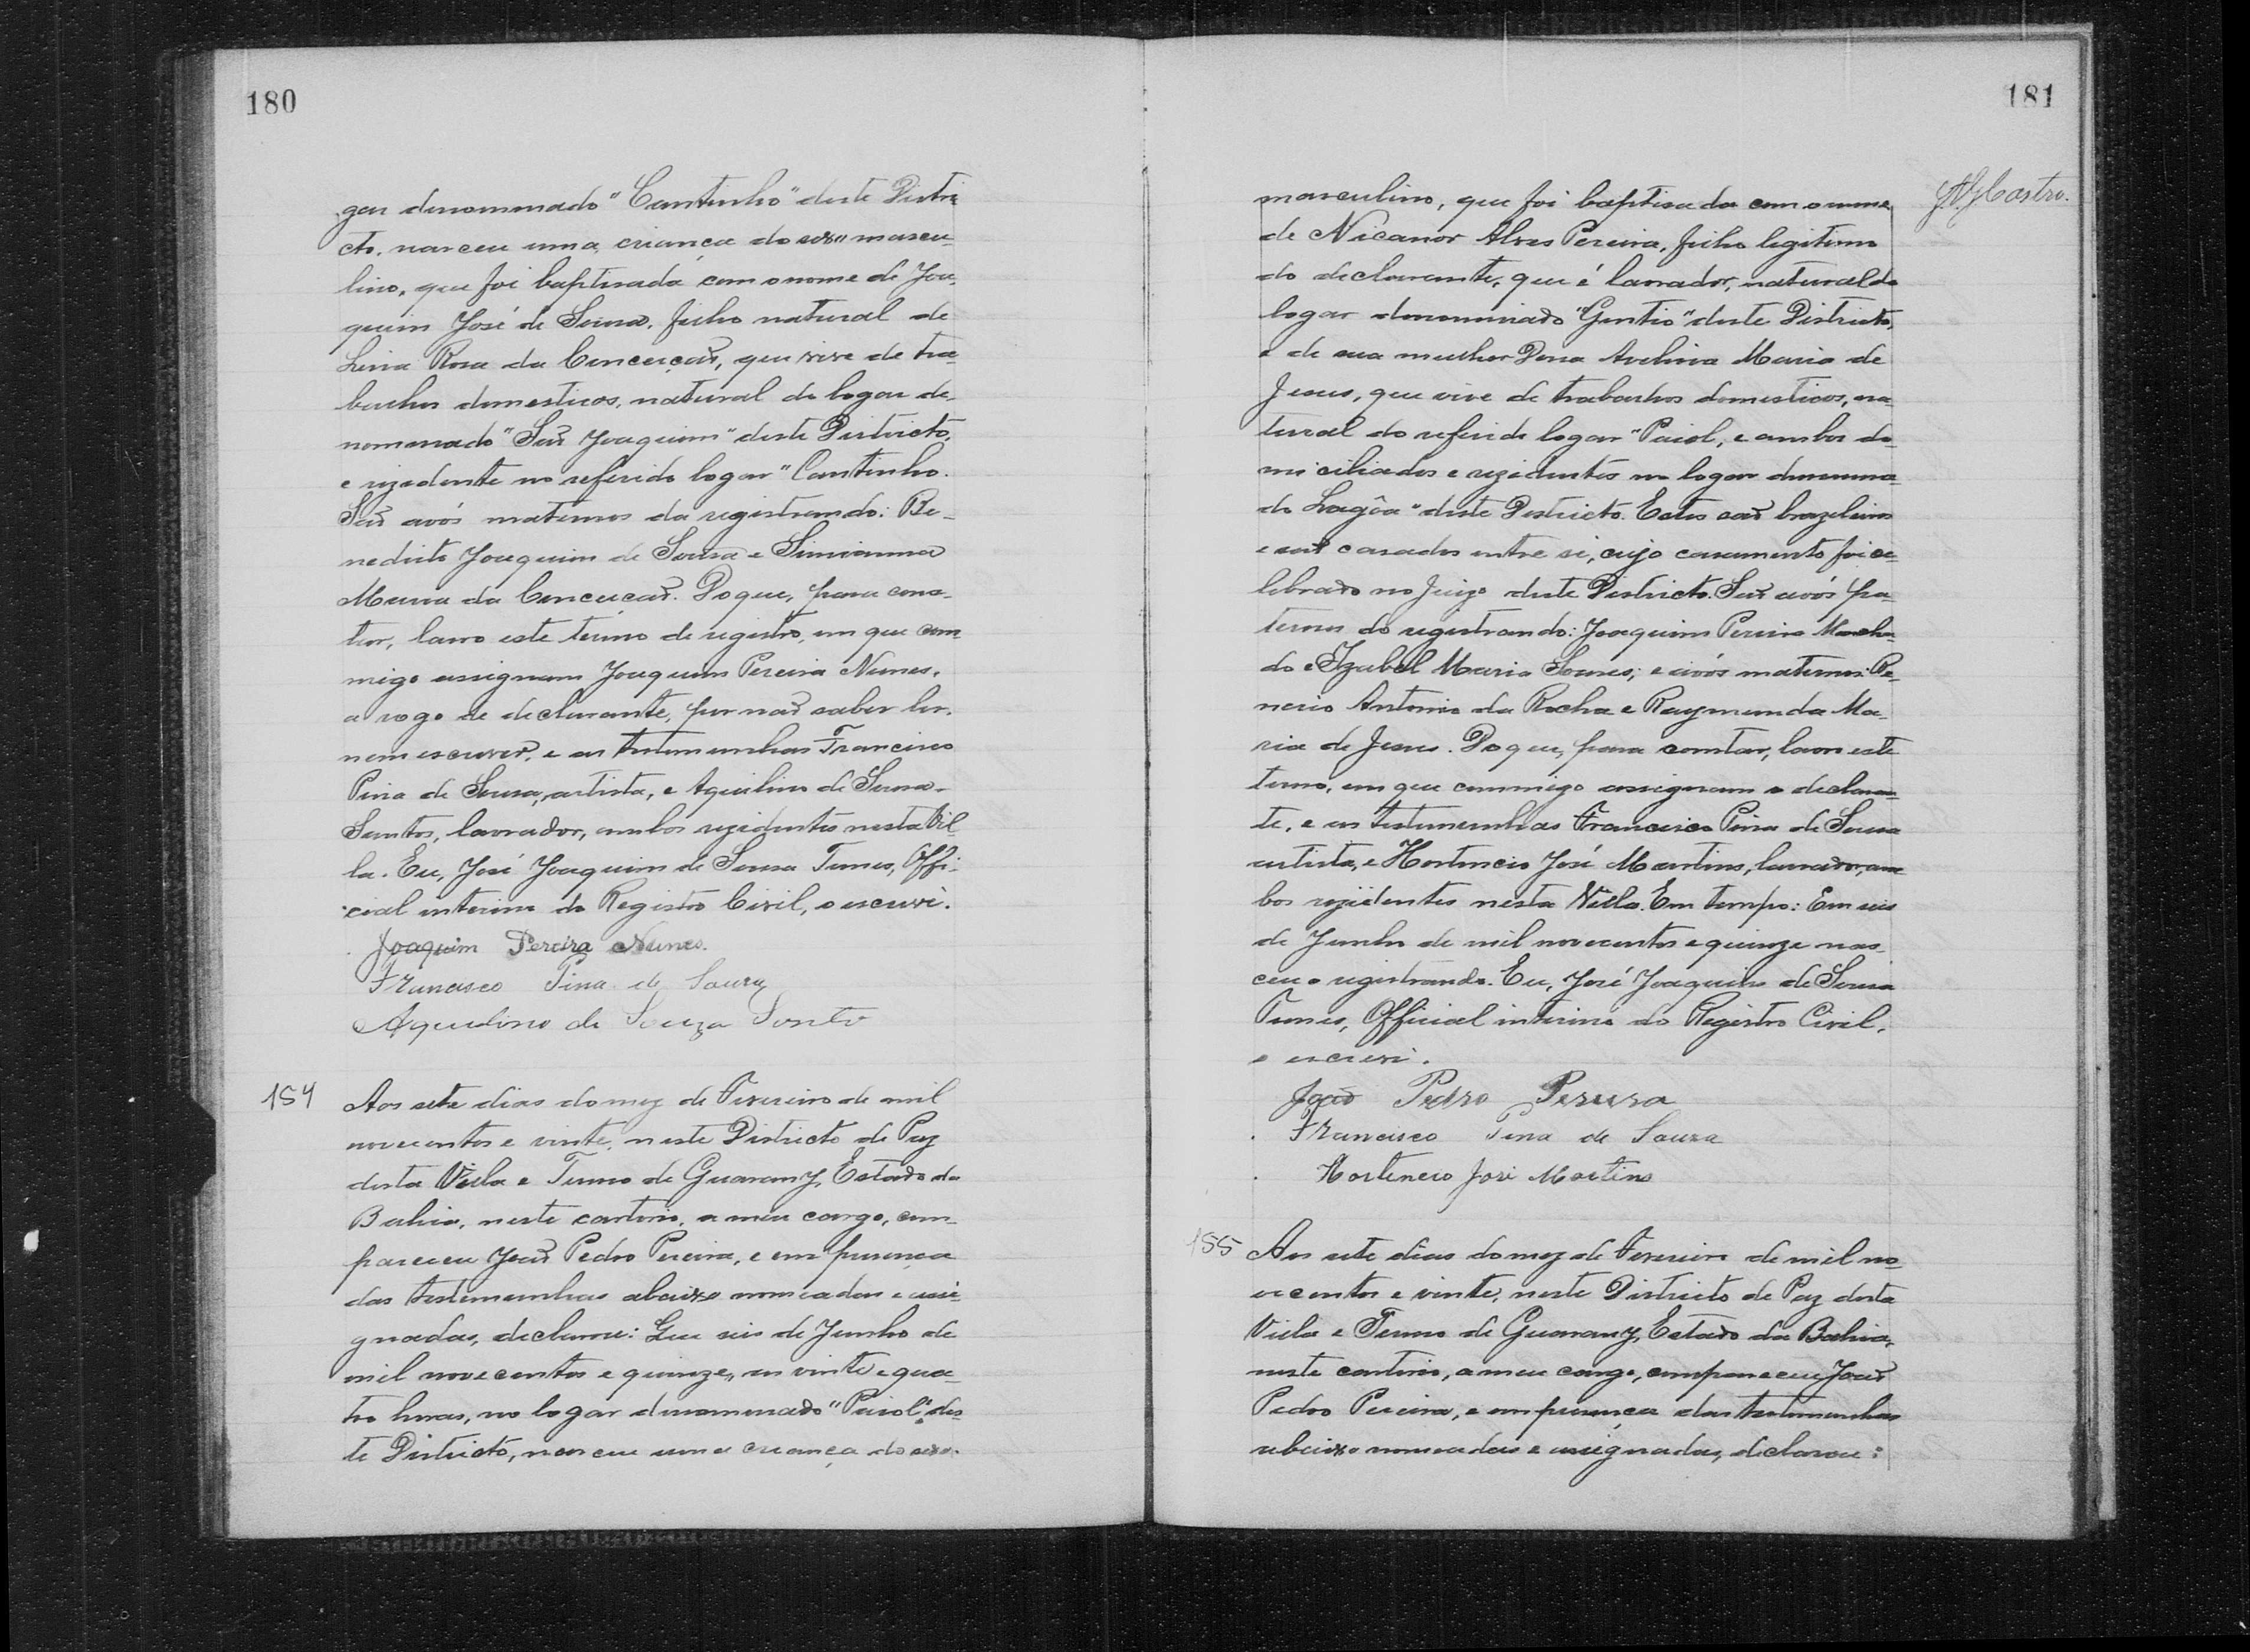 180
gar denominado "Cantinho" deste Distri
cto, nasceu uma criança do sexo mascu-
lino, que foi baptisada com o nome de Joa-
quim José de Sousa, filho natural de
Lina Rosa da Conceição, que vive de tra-
balhos domesticos, natural do logar de-
nominado "São Joaquim" deste Districto,
e rezidente no referido logar "Cantinho.
São avós maternos da registrando: Be-
nedicto Joaquim de Sousa e Simianna
Maria da Conceição. Do que, para cons-
tar, lavro este termo de registro, em que com-
migo assignam Joaquim Pereira Nunes,
a rogo de declarante, por não saber ler,
nem escrever, e as testemunhas Francisco
Pina de Sousa, artista, e Aquilino de Sousa
Santos, lavrador, ambos rezidentes nesta Vil-
la. Eu, José Joaquim de Sousa Tunes, Offi-
cial interino do Registro Civil, o escrevi.
Joaquim Pereira Nunes.
Francisco Pina de Souza
Aquilino de Souza Santo
154 Aos sete dias do mez de Fevereiro de mil
novecentos e vinte, neste Districto de Paz
desta Villa e Termo de Guarany, Estado da
Bahia, neste cartorio, a meu cargo, com-
pareceu João Pedro Pereira, e em presença
das testemunhas abaixo nomeadas e assi-
gnadas, declarou: Que seis de Junho de
mil novecentos e quinze, as vinte e qua-
tro horas, no logar denominado "Paiol", des-
te Districto, nasceu uma criança do sexo
181
masculino, que foi baptisada com o nome
J. Castro.
de Nicanor Alves Pereira, filho legitimo
do declarante, que é lavrador, natural do
logar denominado "Gentio" deste Districto,
e de sua mulher Dona Avelina Maria de
Jesus, que vive de trabalhos domesticos, na-
tural do referido logar "Paiol, e ambos do-
miciliados e rezidentes no logar denomina-
do Lagôa" deste Districto. Estes são brazileiros
e são casados entre si, cujo casamento foi ce-
lebrado no Juizo deste Districto. São avós pa-
ternos do registrando: Joaquim Pereira Macha-
do e Izabel Maria Soares; e avós maternos:
nerio Antonio da Rocha e Raymunda Ma-
ria de Jesus. Do que, para constar, lavro este
termo, em que commigo assignam o declaran-
te, e as testemunhas Francisco Pina de Sousa
artista, e Hortencio José Martins, lavrador, am-
bos rezidentes nesta Villa. Em tempo: Em seis
de Junho de mil novecentos e quinze nas-
ceu o registrando. Eu, José Joaquim de Sousa
Tunes, Official interino do Registro Civil,
o escrevi.
João Pedro Pereira
Francisco Pina de Souza
Hortencio José Martins
155 Aos sete dias do mez de Fevereiro de mil no-
vecentos e vinte, neste Districto de Paz desta
Villa e Termo de Guarany, Estado da Bahia,
neste cartorio, a meu cargo, compareceu João
Pedro Pereira, e em presença das testemunhas
abaixo nomeadas e assignadas, declarou: